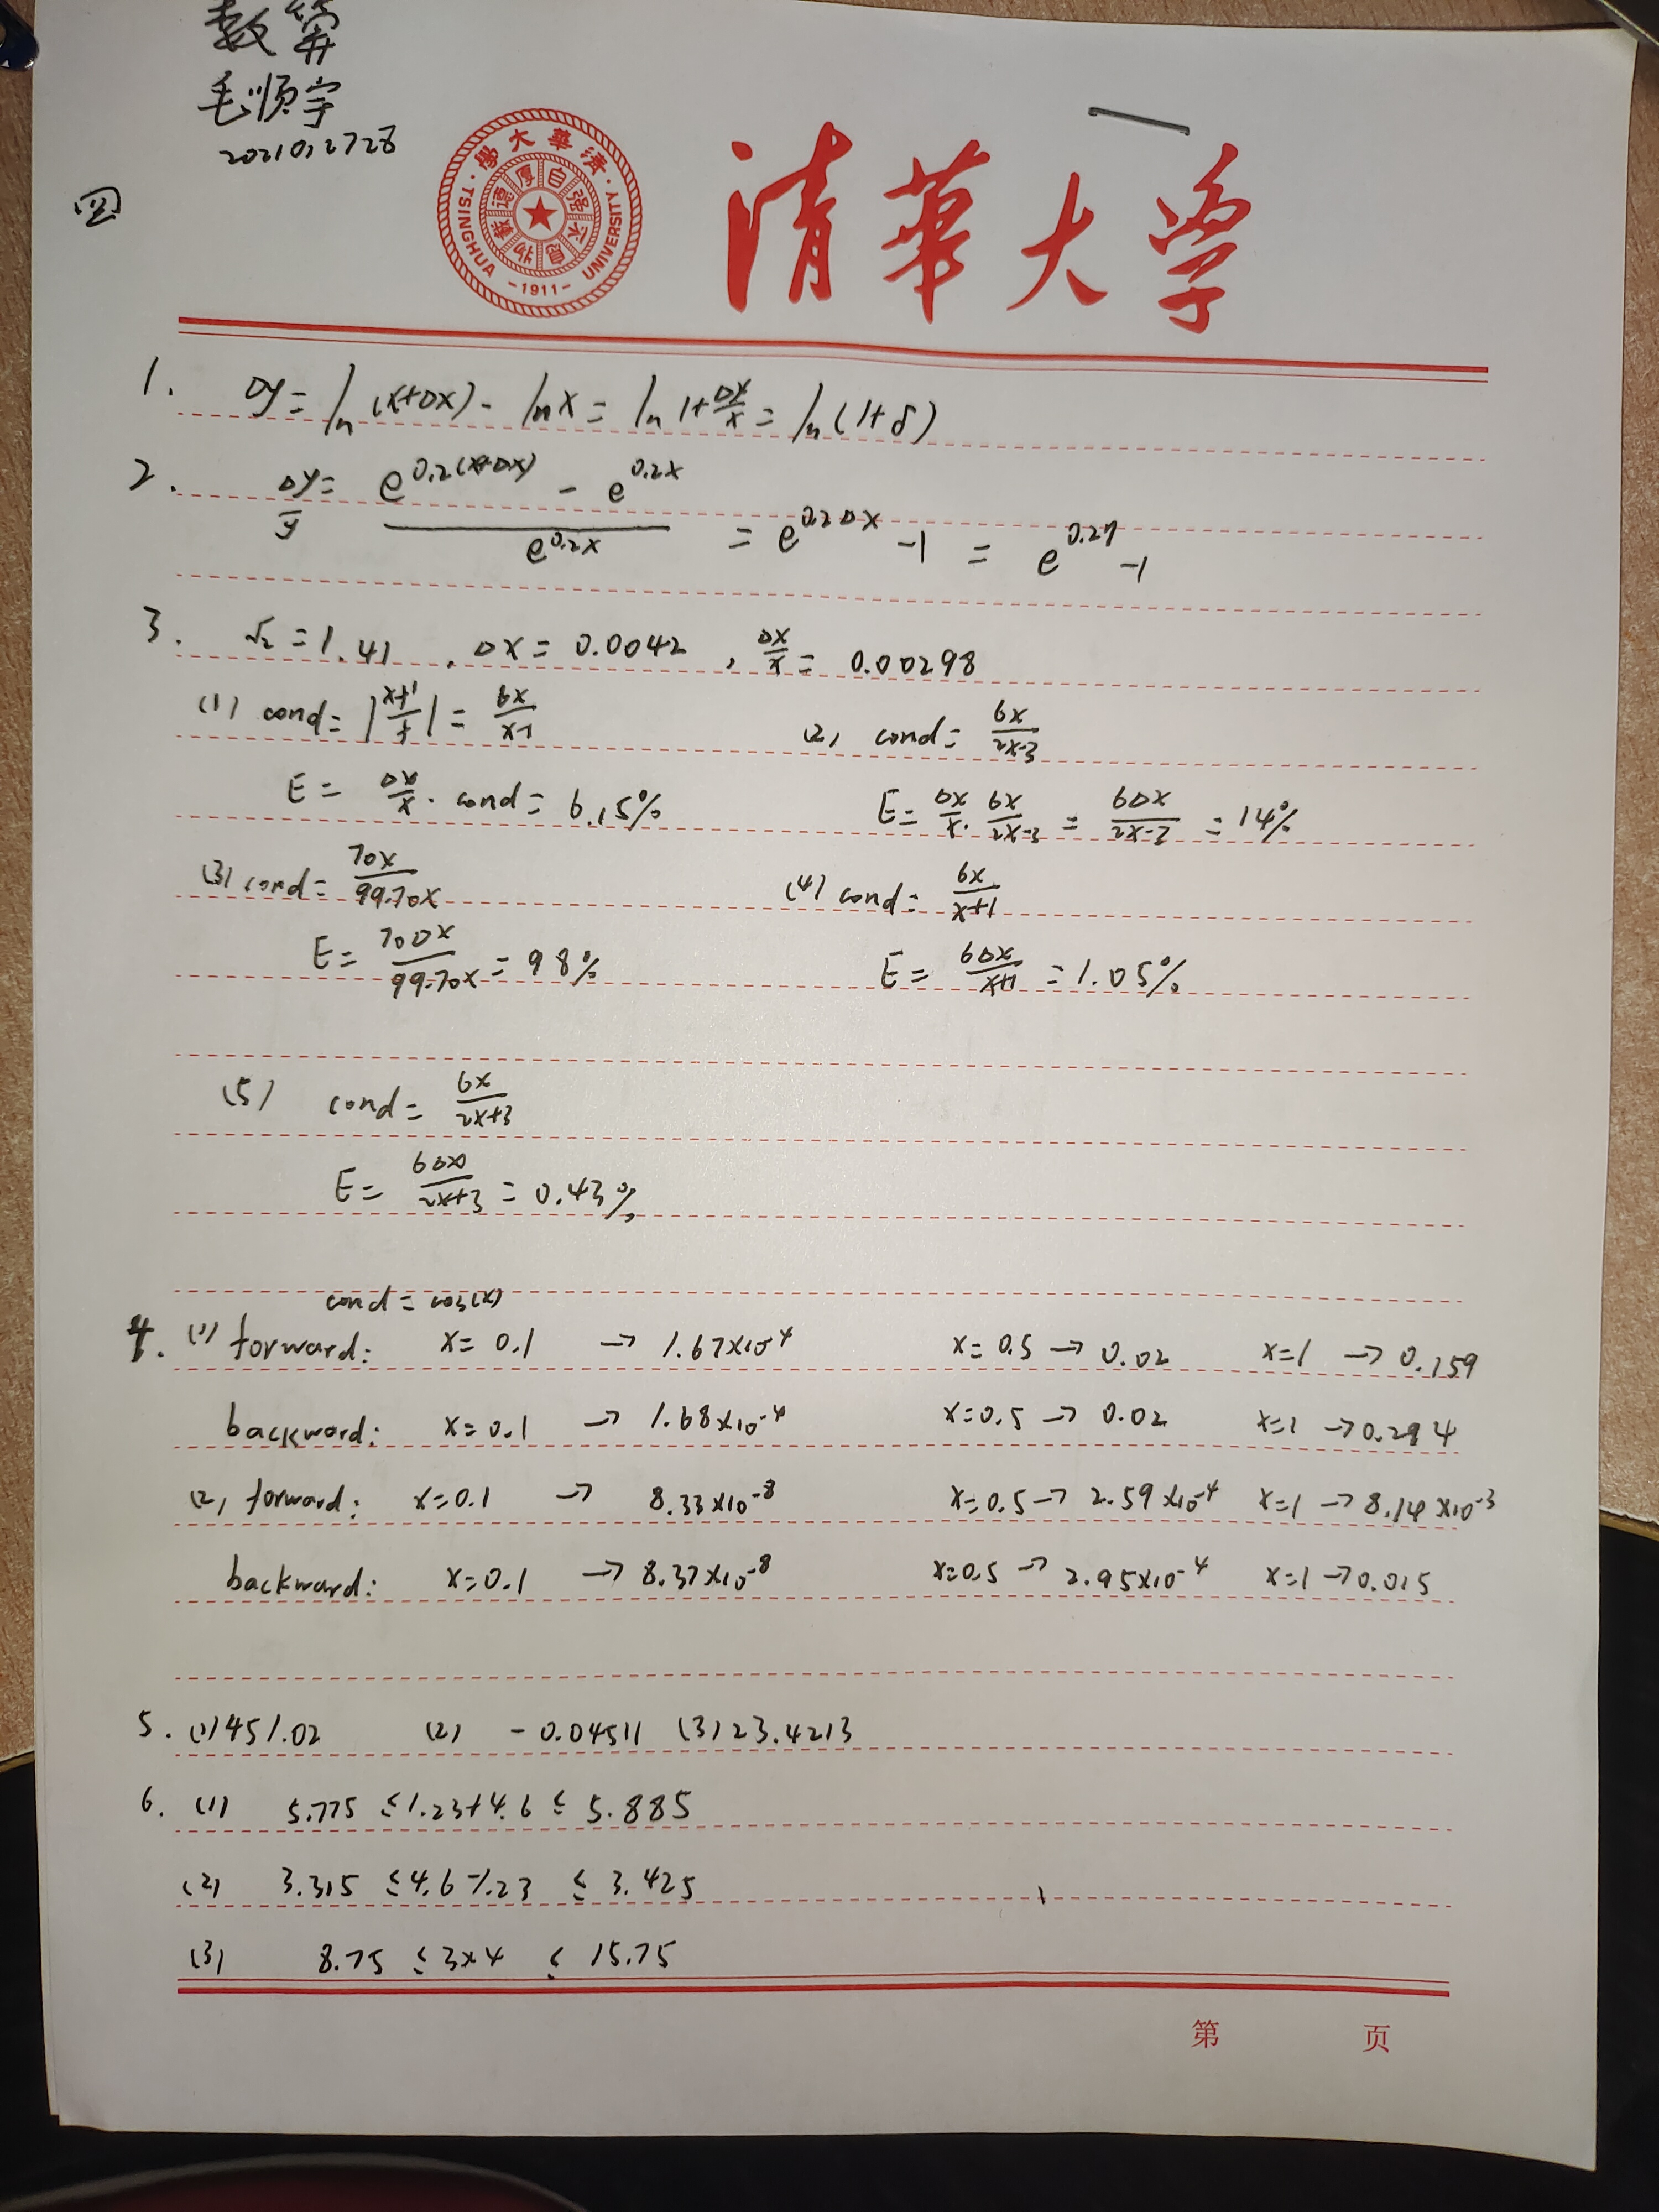 数算
毛顺宇
2021012728
四
清華大学
清華大學
TSINGHUA UNIVERSITY
自强不息
厚德載物
-1911-
1. Δy = ln(x+Δx) - lnx = ln 1+Δx/x = ln(1+δ)
2. Δy/y = (e^0.2(x+Δx) - e^0.2x)/e^0.2x = e^0.2Δx -1 = e^0.2η -1
3. √2 = 1.41 , Δx = 0.0042 , Δx/x = 0.00298
(1) cond = = 6x/(x-1) (2) cond = 6x/(2x-3)
E = Δx/x · cond = 6.15% E = Δx/x · 6x/(2x-3) = 6Δx/(2x-3) = 14%
(3) cond = 70x/(99-70x) (4) cond = 6x/(x+1)
E = 70Δx/(99-70x) = 98% E = 6Δx/(x+1) = 1.05%
(5) cond = 6x/(2x+3)
E = 6Δx/(2x+3) = 0.43%
cond = cos(x)
4. (1) forward: x=0.1 → 1.67×10^-4 x=0.5 → 0.02 x=1 → 0.159
backward: x=0.1 → 1.68×10^-4 x=0.5 → 0.02 x=1 → 0.294
(2) forward: x=0.1 → 8.33×10^-8 x=0.5 → 2.59×10^-4 x=1 → 8.14×10^-3
backward: x=0.1 → 8.37×10^-8 x=0.5 → 2.95×10^-4 x=1 → 0.015
5. (1) 451.02 (2) -0.04511 (3) 23.4213
6. (1) 5.775 ≤ 1.23+4.6 ≤ 5.885
(2) 3.315 ≤ 4.6-1.23 ≤ 3.425
(3) 8.75 ≤ 3×4 ≤ 15.75
第 页